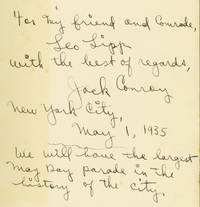 For my friend and Comrade,
Leo Lipp
with the best of regards,
Jack Conroy
New York City,
May 1, 1935
We will have the largest
May Day parade in the
history of the city.